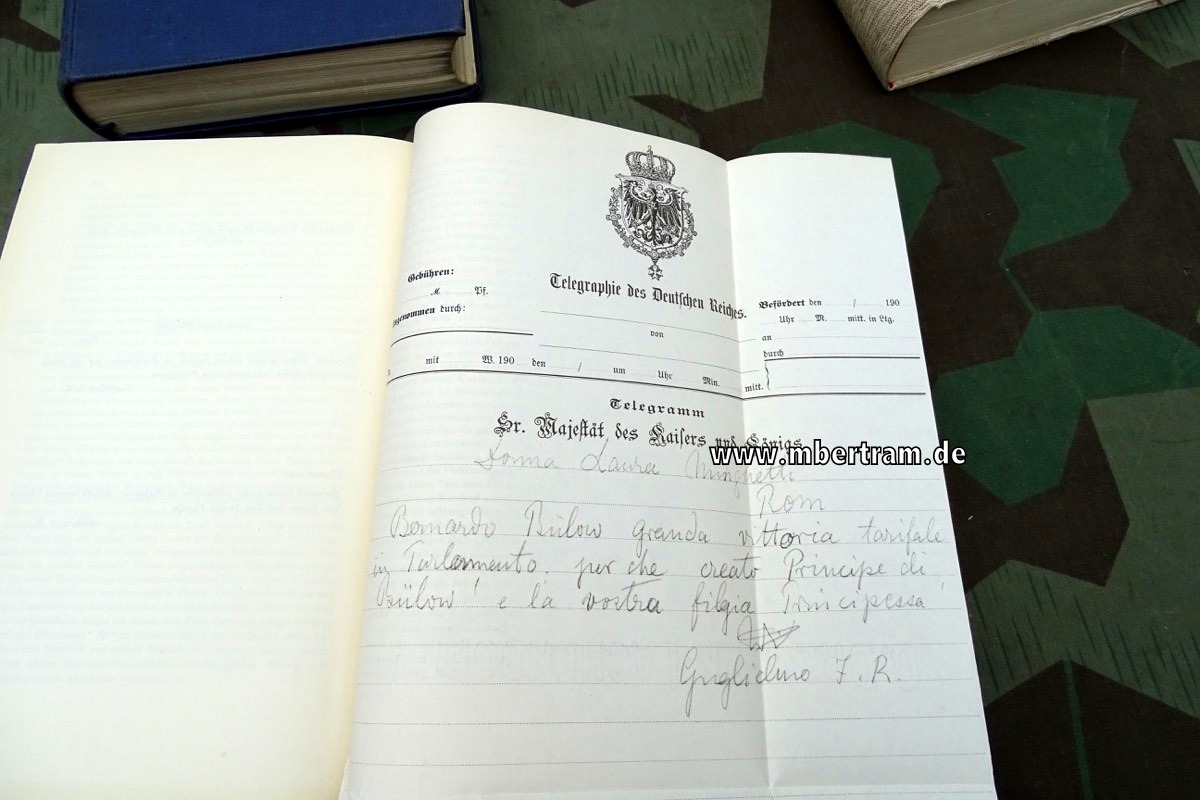 Gebühren:
M. Pf.
durch:
Telegraphie des Deutschen Reiches.
von
Befördert den / 190
Uhr M. mitt. in Ltg.
an
durch
mit W. 190 den / um Uhr Min. mitt.
Telegramm
Sr. Majestät des Kaisers und Königs
www.mbertram.de
Donna Laura Minghetti
Rom
Bernardo Bülow granda vittoria tarifale
in Parlamento. per che creato Principe di
Bülow e la vostra filgia Principessa
Guglielmo I. R.